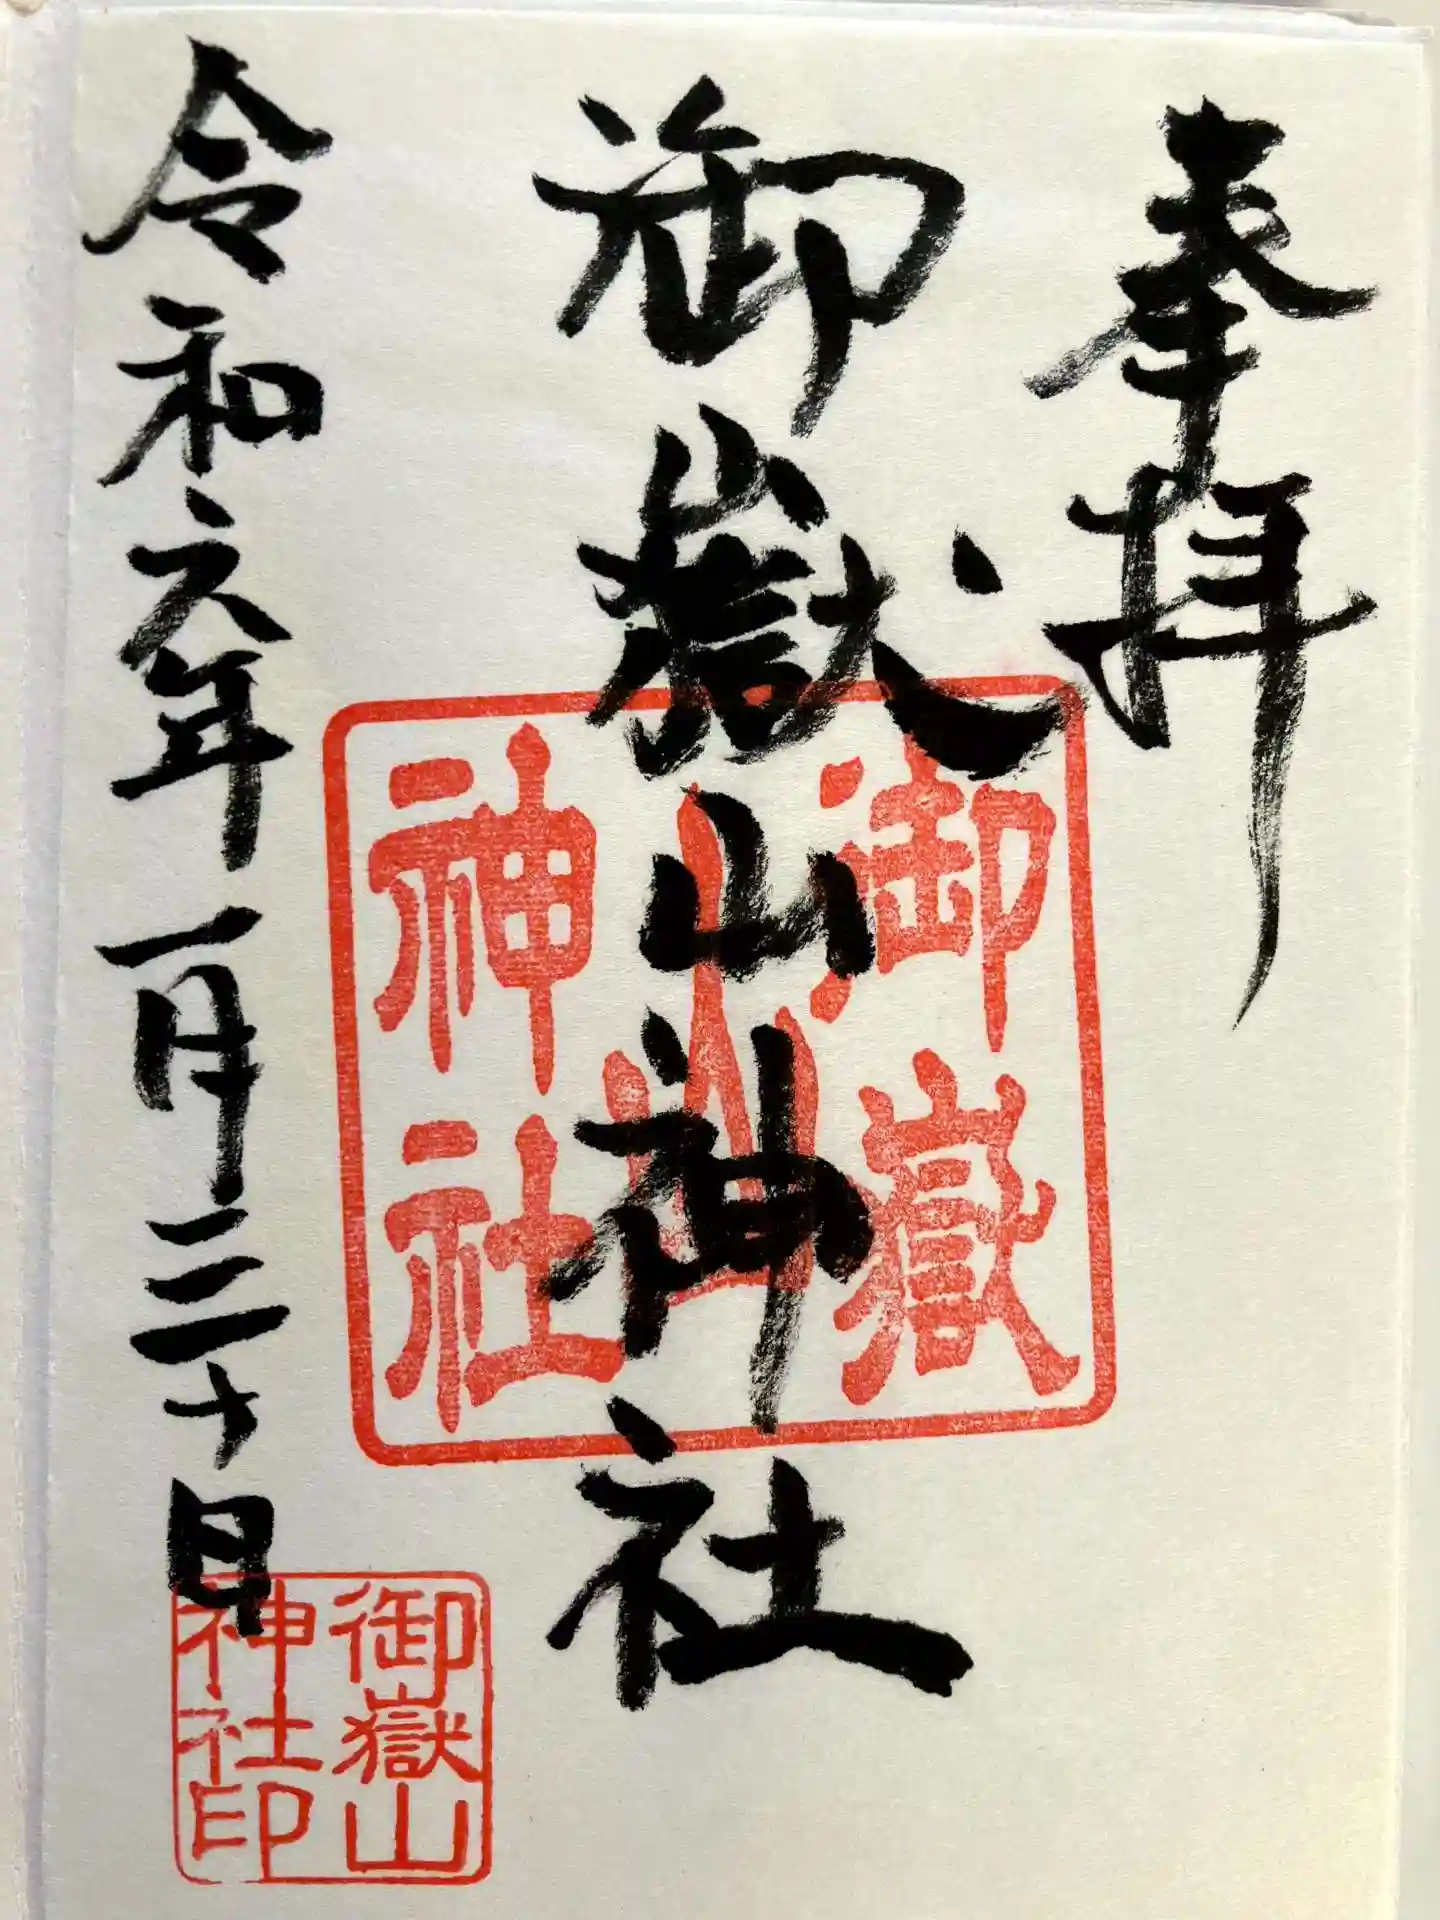 奉拝
御嶽山神社
御嶽
山
神社
令和六年一月三十日
御嶽山
神社印